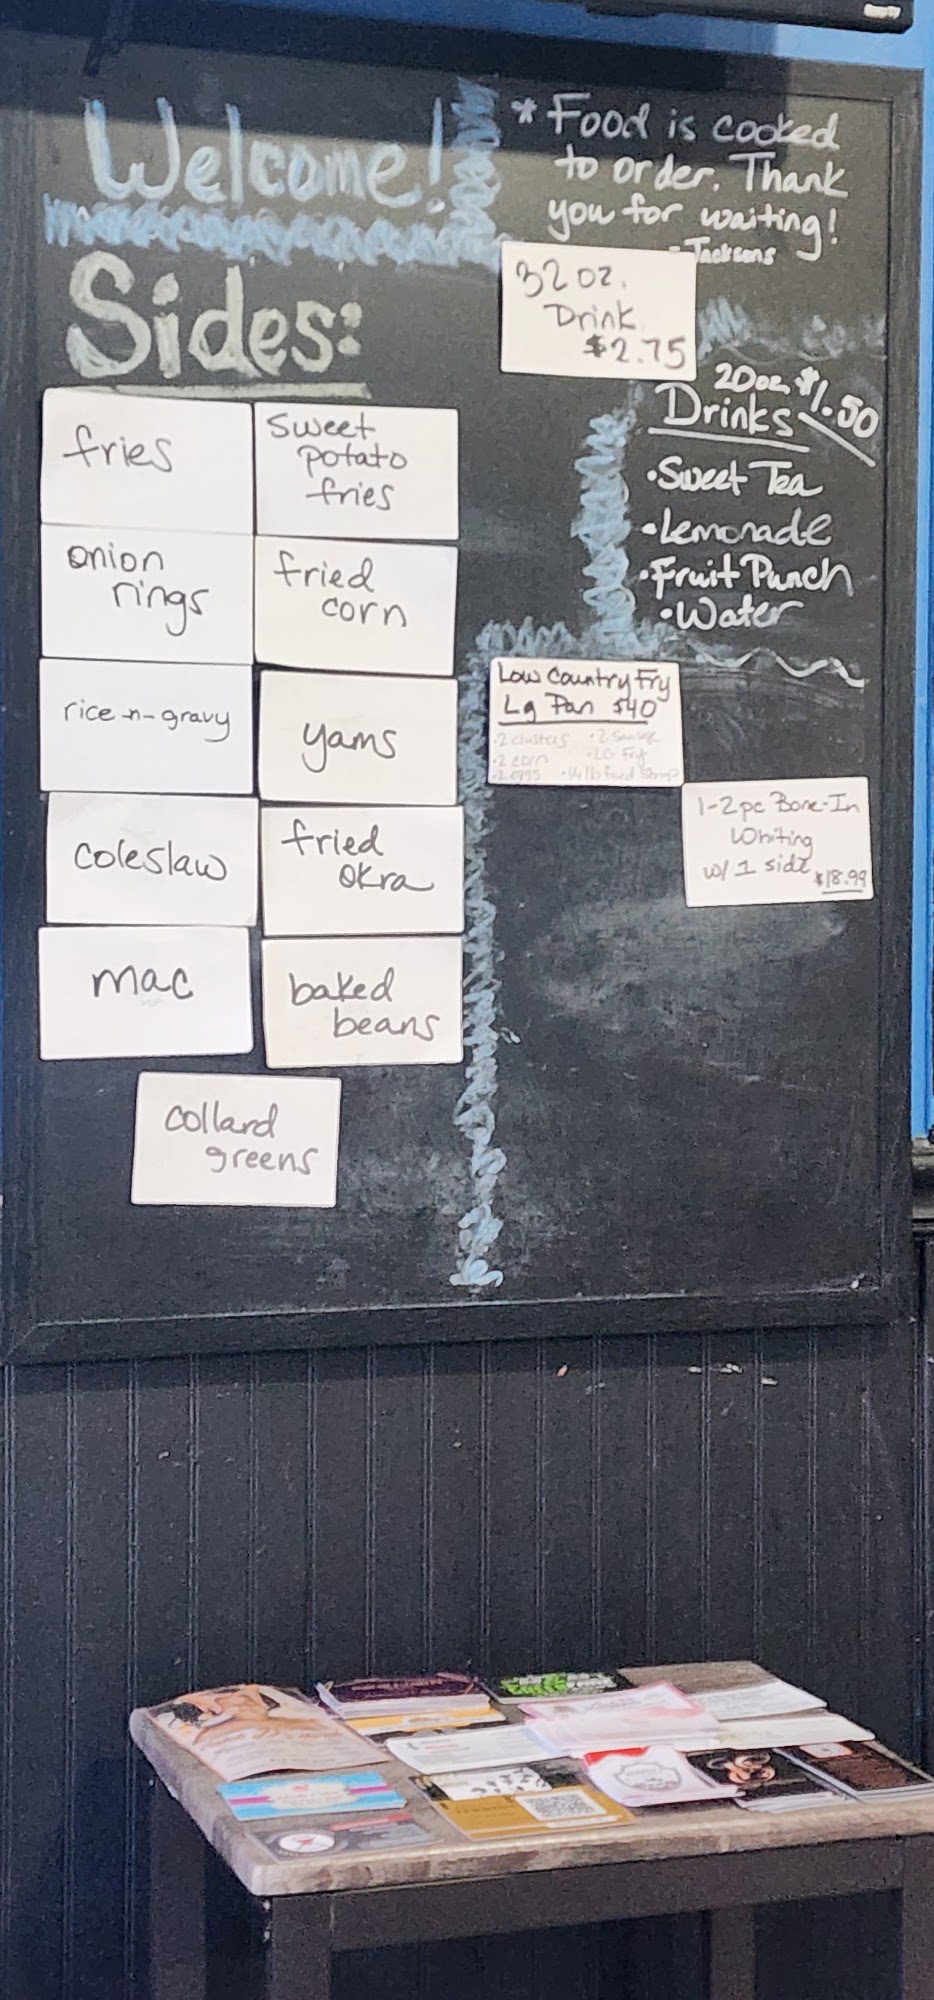 Welcome!
* Food is cooked
to order. Thank
you for waiting!
- Jacksons
32 oz.
Drink
$2.75
20oz. $1.50
Drinks
• Sweet Tea
• Lemonade
• Fruit Punch
• Water
Sides:
fries
sweet
potato
fries
onion
rings
fried
corn
rice-n-gravy
yams
coleslaw
fried
okra
mac
baked
beans
collard
greens
Low Country Fry
Lg Pan $40
• 2 clusters
• 2 corn
• 2 eggs
• 2 sausage
• LG fry
fried shrimp
1-2pc Bone-In
Whiting
w/ 1 side
$18.99